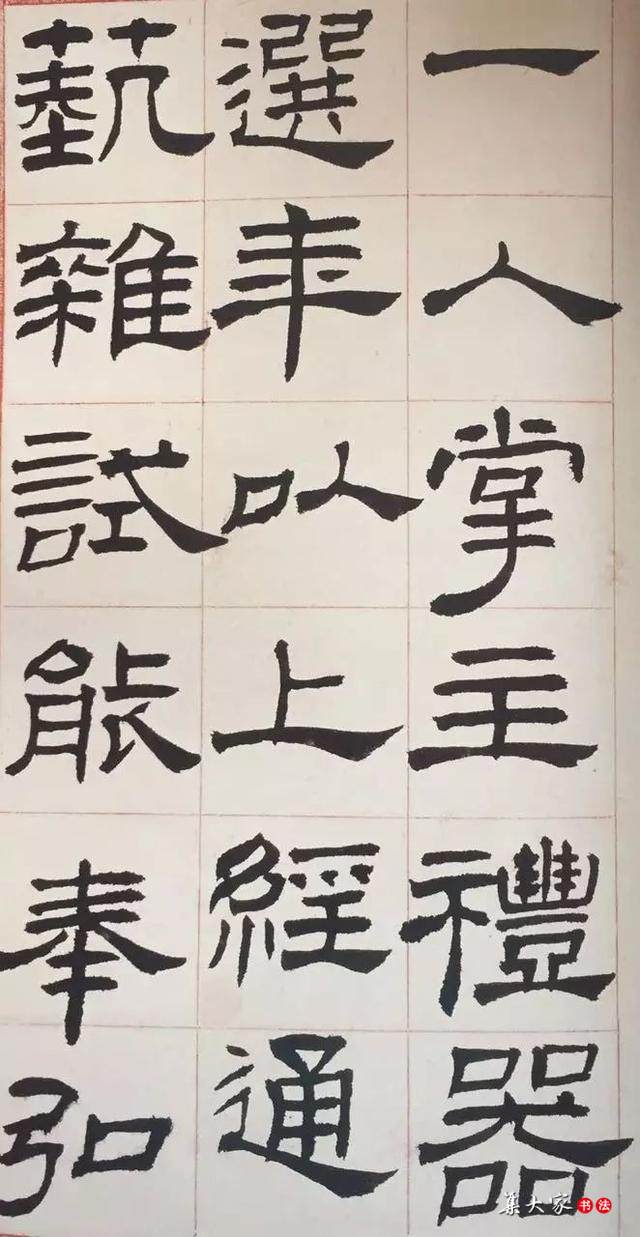 一人掌主禮器
選年以上經通
蓺雜試能奉弘
集大家书法